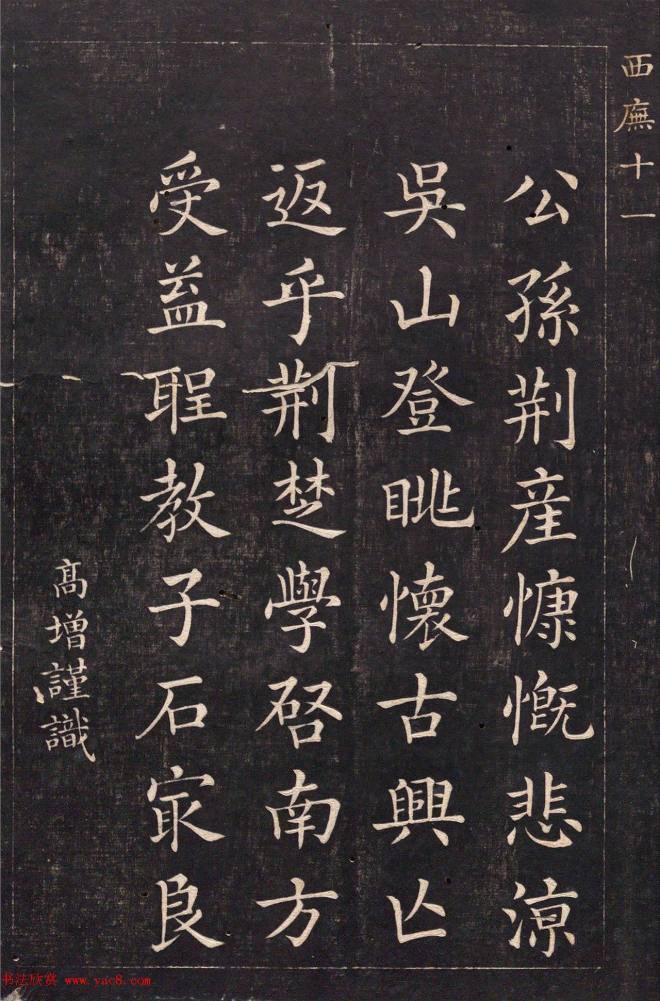 西廡十一
公孫荆産慷慨悲凉
吳山登眺懷古興亾
返乎荆楚學啓南方
受益聖教子石冣良
高增謹識
书法欣赏 www.yac8.com